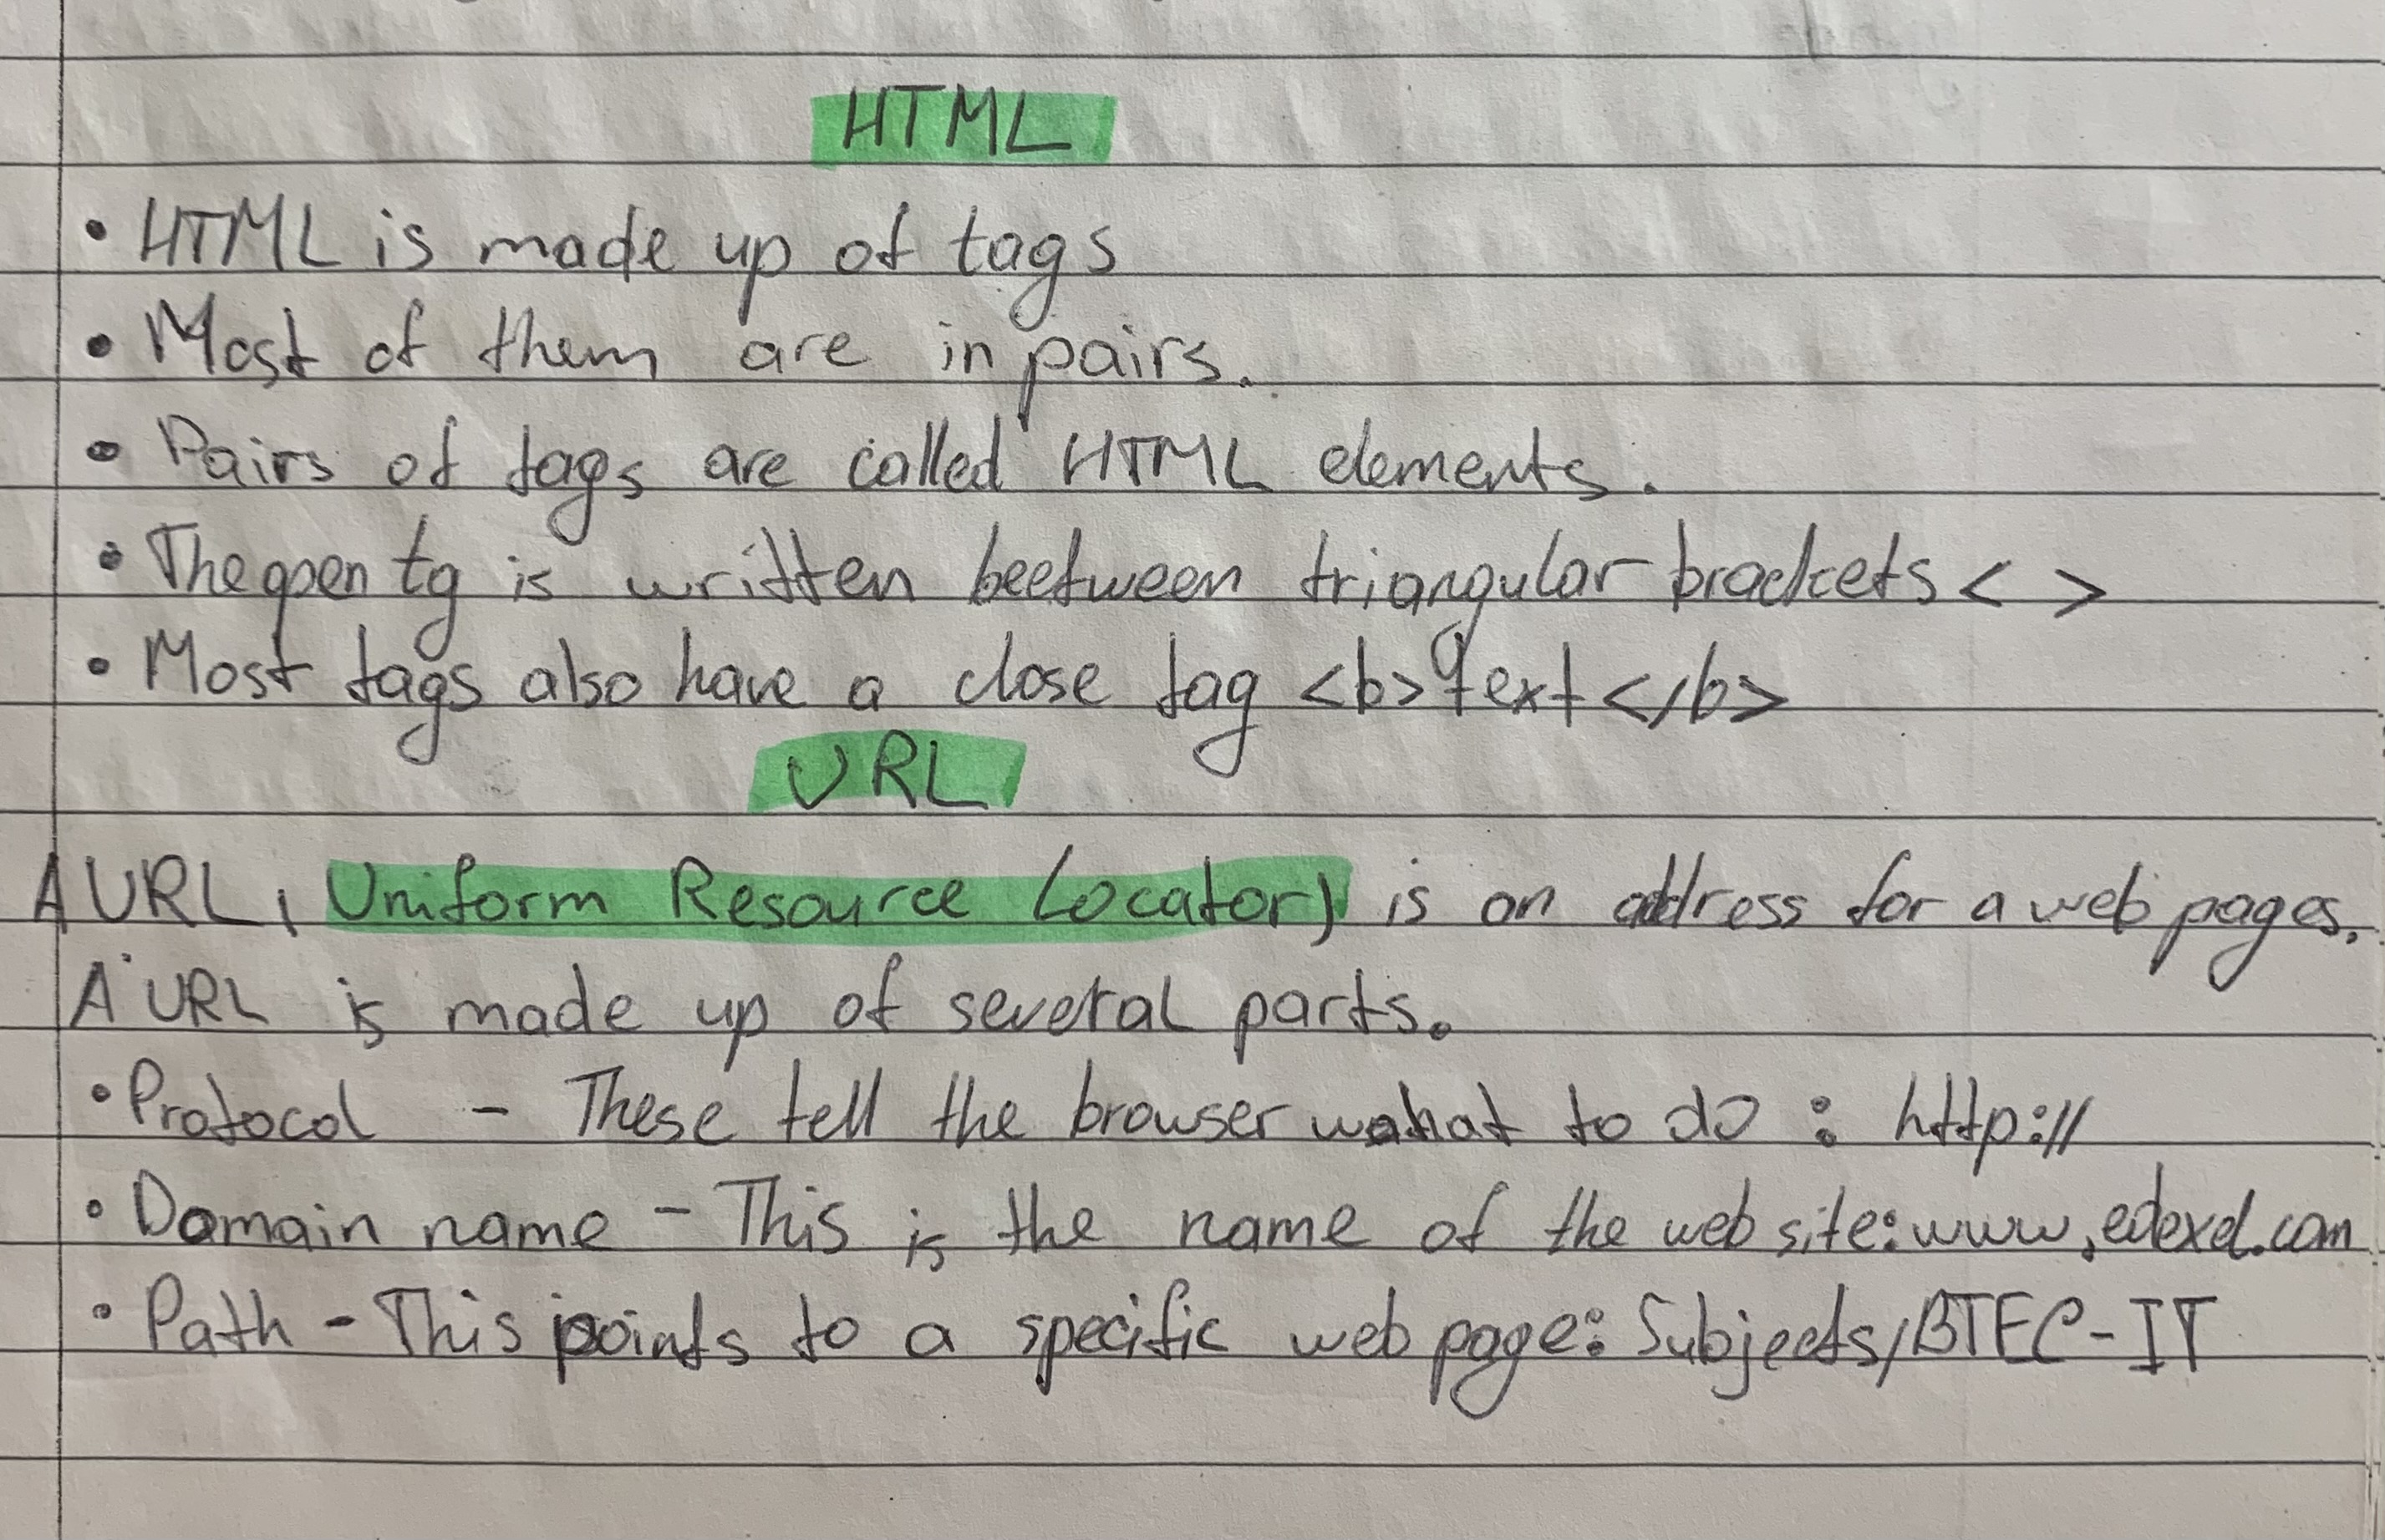 HTML
• HTML is made up of tags
• Most of them are in pairs.
• Pairs of tags are called HTML elements.
• The open tg is written beetween triangular brackets < >
• Most tags also have a close tag <b> text </b>
URL
A URL, Uniform Resource Locator) is an address for a web pages.
A URL is made up of several parts.
• Protocol - These tell the browser what to do : http://
• Domain name - This is the name of the web site: www.edexel.com
• Path - This points to a specific web page: Subjects/BTEC-IT